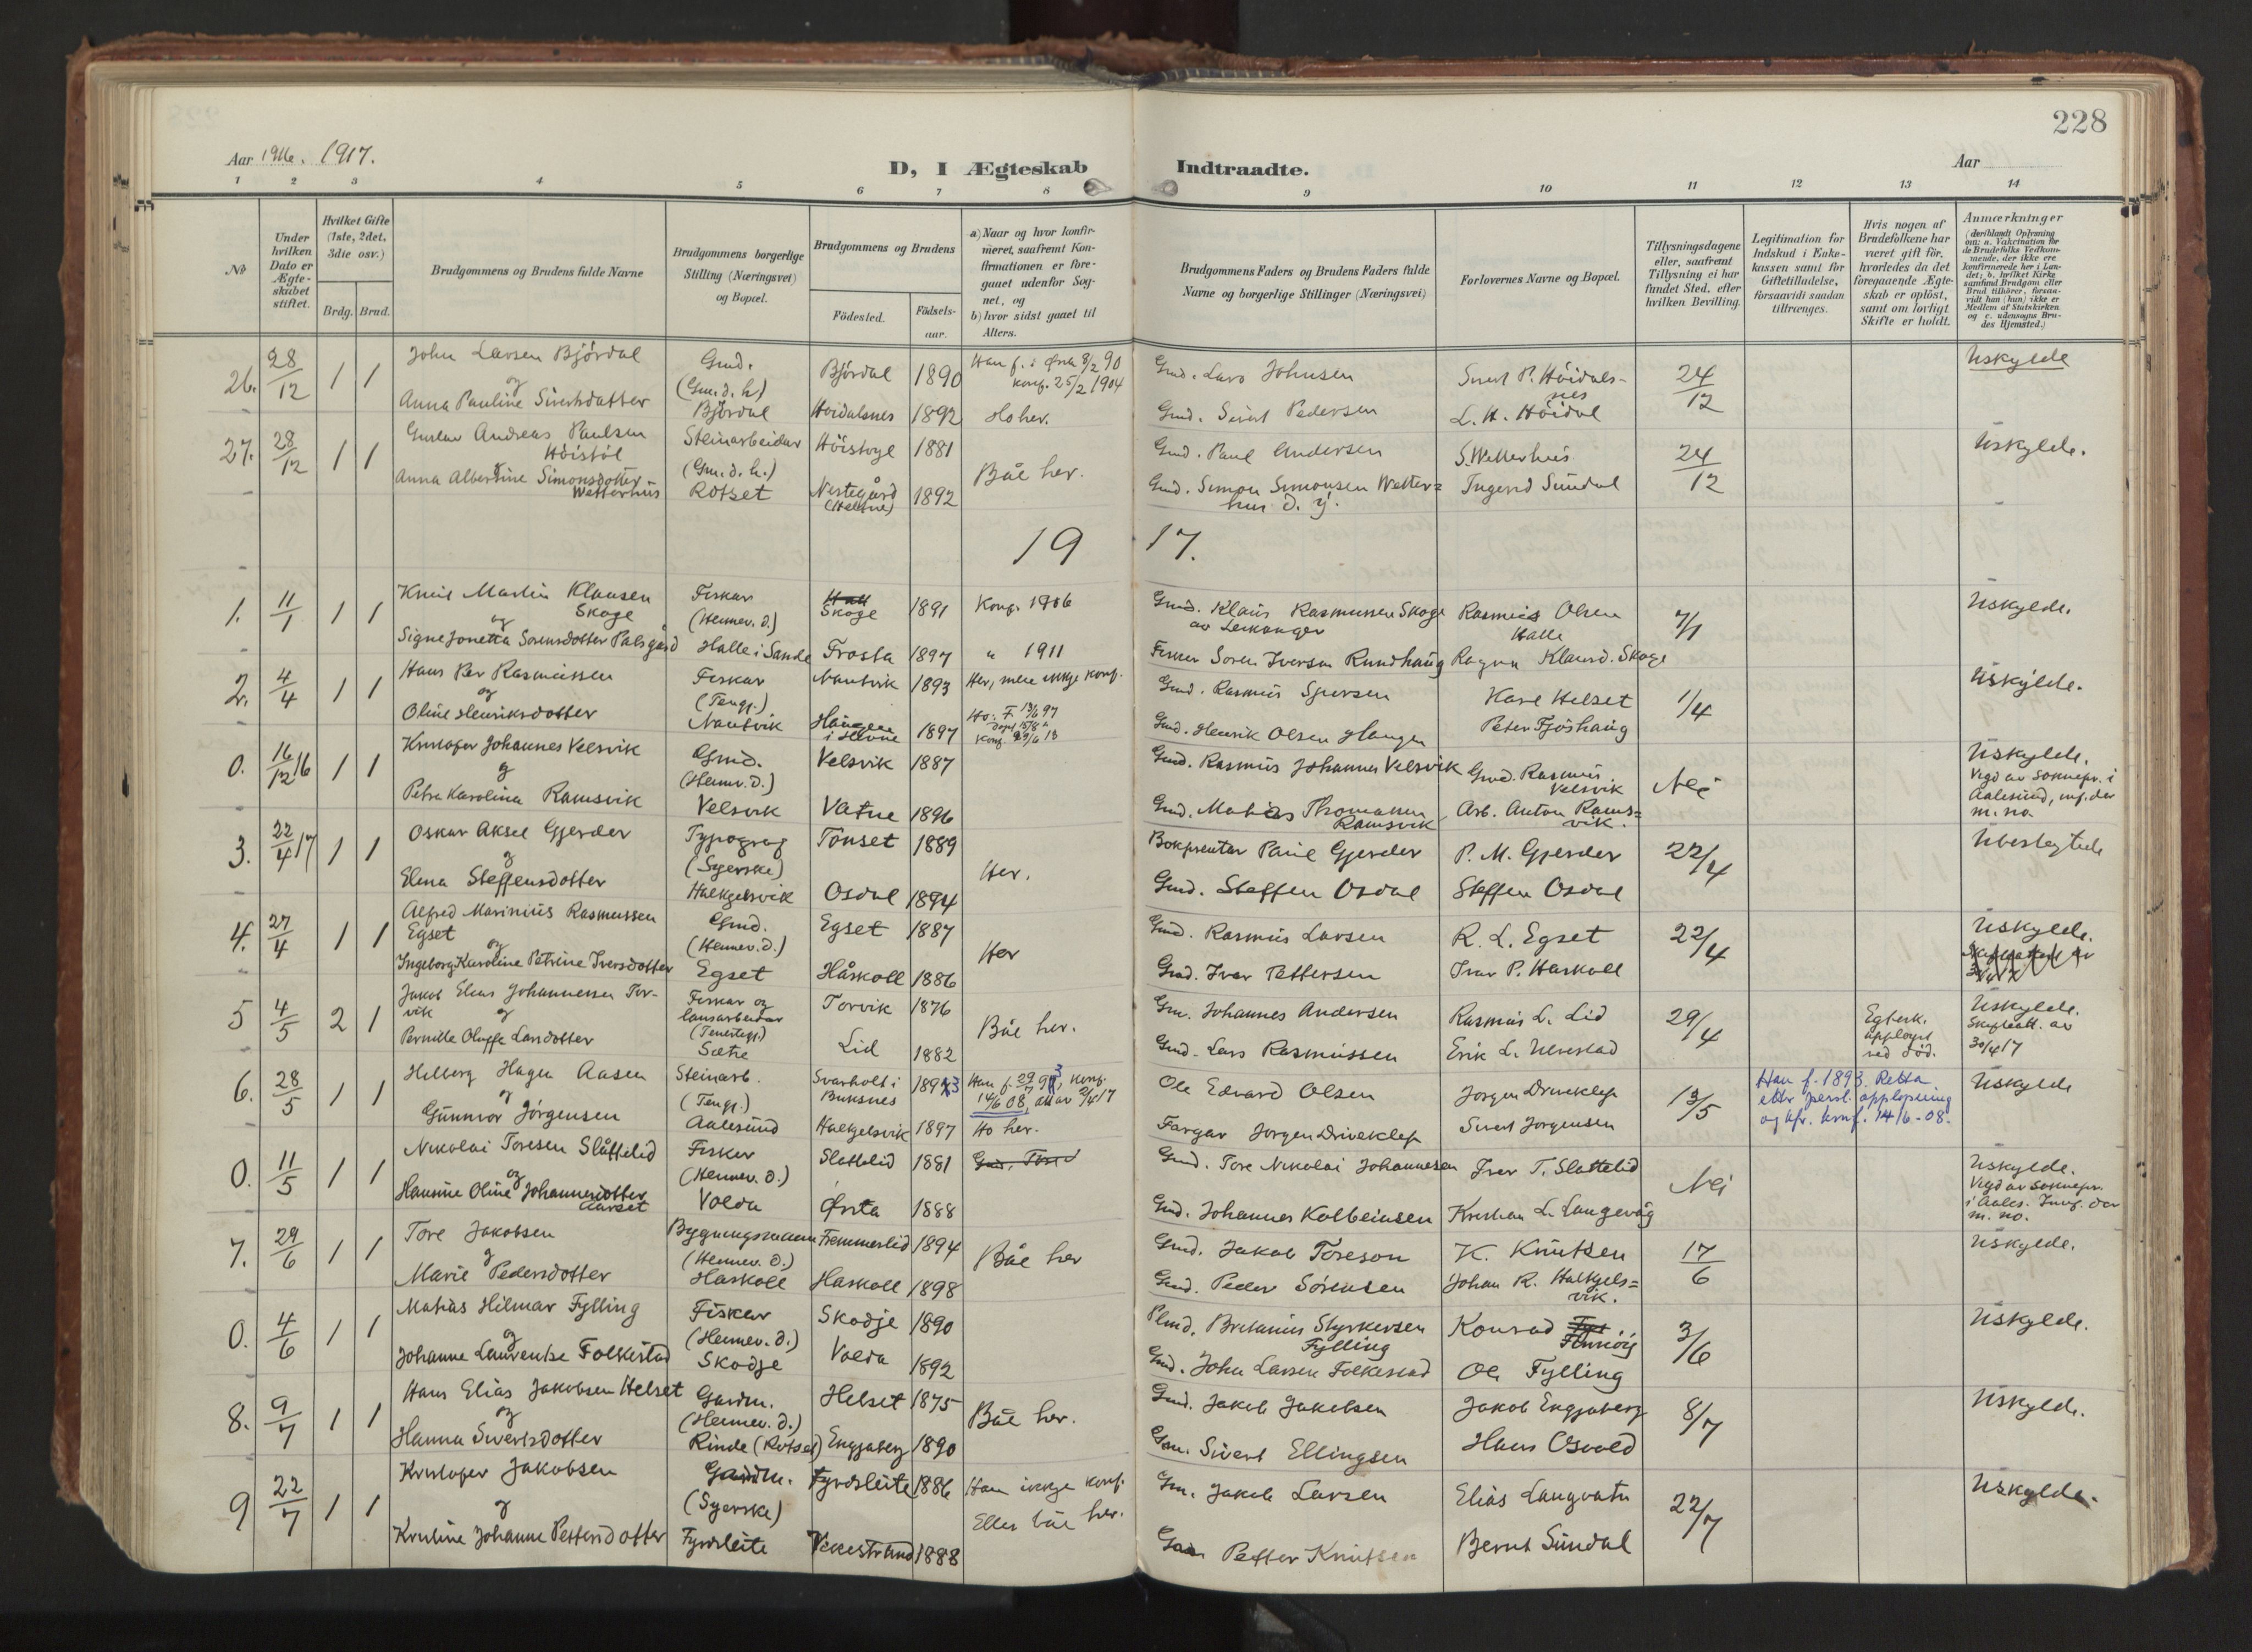 228
Aar 1916. 1917.
D, I Ægteskab Indtraadte.
Aar
1 2 3 4 5 6 7 8 9 10 11 12 13 14
No
Under hvilken Dato er Ægteskabet stiftet.
Hvilket Gifte (1ste, 2det, 3die osv.)
Brdg. Brud.
Brudgommens og Brudens fulde Navne
Brudgommens borgerlige Stilling (Næringsvei) og Bopæl.
Brudgommens og Brudens
Fødested.
Fødselsaar.
a) Naar og hvor konfirmeret, saafremt Konfirmationen er foregaaet udenfor Sognet, og
b) hvor sidst gaaet til Alters.
Brudgommens Faders og Brudens Faders fulde Navne og borgerlige Stillinger (Næringsvei)
Forlovernes Navne og Bopæl.
Tillysningsdagene eller, saafremt Tillysning ei har fundet Sted, efter hvilken Bevilling.
Legitimation for Indskud i Enkekassen samt for Giftetilladelse, forsaavidt saadan tiltrænges.
Hvis nogen af Brudefolkene har været gift før, hvorledes da det foregaaende Ægteskab er opløst, samt om lovligt Skifte er holdt.
Anmærkninger (deriblandt Oplysning om: a. Vakcination for de Brudefolks Vedkommende, der ikke ere konfirmerede her i Landet; b. hvilket Kirkesamfund Brudgom eller Brud tilhører, forsaavidt han (hun) ikke er Medlem af Statskirken og c. udensogns Brudes Hjemsted.)
26. 28/12 1 1 John Larsen Bjørdal Gmd. Bjørdal 1890 Han f. i Ørsta 8/2 90 Gmd. Lars Johnsen Sivert P. Höidalsnes 24/12 Uskylde
og (Gm.d. h) konf. 25/2 1904
Anna Pauline Sivertsdatter Bjørdal Høidalsnes 1892 Ho her. Gmd. Sivert Pedersen L. H. Höidal
27. 28/12 1 1 Gustav Andreas Paulsen Höistöl Steinarbeidar Höistøyl 1881 Gmd. Paul Andersen S. Wetterhus 24/12 Uskylde.
og (Gm. d. h.) Båe her.
Anna Albertine Simonsdotter Wetterhus Rotset Nestegård 1892 Gmd. Simon Simonsen Wetterhus d. y. Ingerd Sundal
19 17.
1. 11/1 1 1 Knut Martin Klausen Skoge Fiskar Skoge 1891 Konf. 1906 Gmd. Klaus Rasmussen Skoge av Leikanger Rasmus Olsen Halle 7/1 Uskylde.
og (Heimev. d.)
Signe Jonetta Sorensdotter Palsgård Halle i Sande Frosta 1897 " 1911 Fisker Soren Iversen Rundhaug Ragna Klausd. Skoge
2. 4/4 1 1 Hans Per Rasmussen Fiskar Nautvik 1893 Her, men ikkje konf. Gmd. Rasmus Sjursen Karl Helset 1/4 Uskylde.
og (Tengj.)
Oline Henriksdotter Nautvik Haugen 1897 Ho: F 13/6 97 Gmd. Henrik Olsen Haugen Peter Fjöshaug
0. 16/12 16 1 1 Kristofer Johannes Velsvik Gmd. Velsvik 1887 Gmd. Rasmus Johannes Velsvik Gmd. Rasmus Velsvik Nei Uskylde.
og (Heimv. d.) Vigd av soknepr. i
Petra Karolina Ramsvik Velsvik Vatne 1896 Gmd. Matias Thomassen Ramsvik Arb. Anton Ramsvik. Aalesund, inf. der m. no
3. 22/4 17 1 1 Oskar Aksel Gjerder Typograf Tonset 1889 Her. Bokprentar Paul Gjerder P. M. Gjerder 22/4 Ubeslegtede
og (Syerske)
Elena Steffensdotter Halkjelsvik Osdal 1894 Gmd. Steffen Osdal Steffen Osdal
4. 27/4 1 1 Alfred Marinius Rasmussen Egset Gmd. Egset 1887 Her Gmd. Rasmus Larsen R. L. Egset 22/4 Uskylde.
og (Heimev. d.)
Ingeborg Karoline Petrine Iversdotter Egset Håskoll 1886 Gmd. Ivar Pettersen Ivar P. Haskoll
5 4/5 2 1 Jakob Elias Johannessen Torvik Fiskar og lausarbeidar Torvik 1876 Båe her. Gm. Johannes Andersen Rasmus L. Lid 29/4 Egtesk. uppløyst ved död. Uskylde.
og (Tenestegj.) Skifteatt. av 30/4 17
Pernille Oluffe Larsdotter Sætre Lid 1882 Gmd. Lars Rasmussen Erik L. Ulvestad
6. 28/5 1 1 Hilberg Hagen Aasen Steinarb. Svarholt i Buksnes 1893 Han f. 29/7 93, konf. 14/6 08, att av 2/4 17 Ole Edvard Olsen Jorgen Driveklep 13/5 Han f. 1893. Retta etter persl. opplysning og kfr. konf. 14/6-08. Uskylde
og (Tengj.)
Gunnvor Jörgensen Aalesund Halkjelsvik 1897 Ho her. Fargar Jorgen Driveklep Sivert Jorgensen
0. 11/5 1 1 Nikolai Toresen Slåttelid Fisker Slåttelid 1881 Gmd. Tore Nikolai Johannesen Iver T. Slåttelid Nei Uskylde.
og (Heimev. d.) Vigd av soknepr.
Hansine Oline Johannesdotter Aarset Volda Ørsta 1888 Gmd. Johannes Kolbeinsen Kristian L. Langevåg i Aales. Innf. der m. no.
7. 29/6 1 1 Tore Jakobsen Bygningsmann Fremmerlid 1894 Båe her Gmd. Jakob Toreson K. Knutsen 17/6 Uskylde.
og (Heimev. d.)
Marie Pedersdotter Haskoll Haskoll 1898 Gmd. Peder Sørensen Johan R. Halkjelsvik.
0. 4/6 1 1 Matias Hilmar Fylling Fisker Skodje 1890 Plmd. Bretanius Styrkersen Fylling Konrad 3/6 Uskylde.
og (Heimev. d.)
Johanne Laurentse Folkestad Skodje Volda 1892 Gmd. John Larsen Folkestad Ole Fylling
8. 9/7 1 1 Hans Elias Jakobsen Helset Gardm. Helset 1875 Båe her. Gmd. Jakob Jakobsen Jakob Engjaberg 8/7 Uskylde.
og (Heimev. d.)
Hanna Sivertsdotter Rinde (Rotset) Engjaberg 1890 Gm. Sivert Ellingsen Hans Osvold
9 22/7 1 1 Kristofer Jakobsen Gardm. Fyrdsleite 1886 Han ikkje konf. Gm. Jakob Larsen Elias Langvatn 22/7 Uskylde.
og (Syerske) Elles båe her.
Kristine Johanne Pettersdotter Fyrdsleite Vikestrand 1888 Gm Petter Knutsen Bernt Sundal